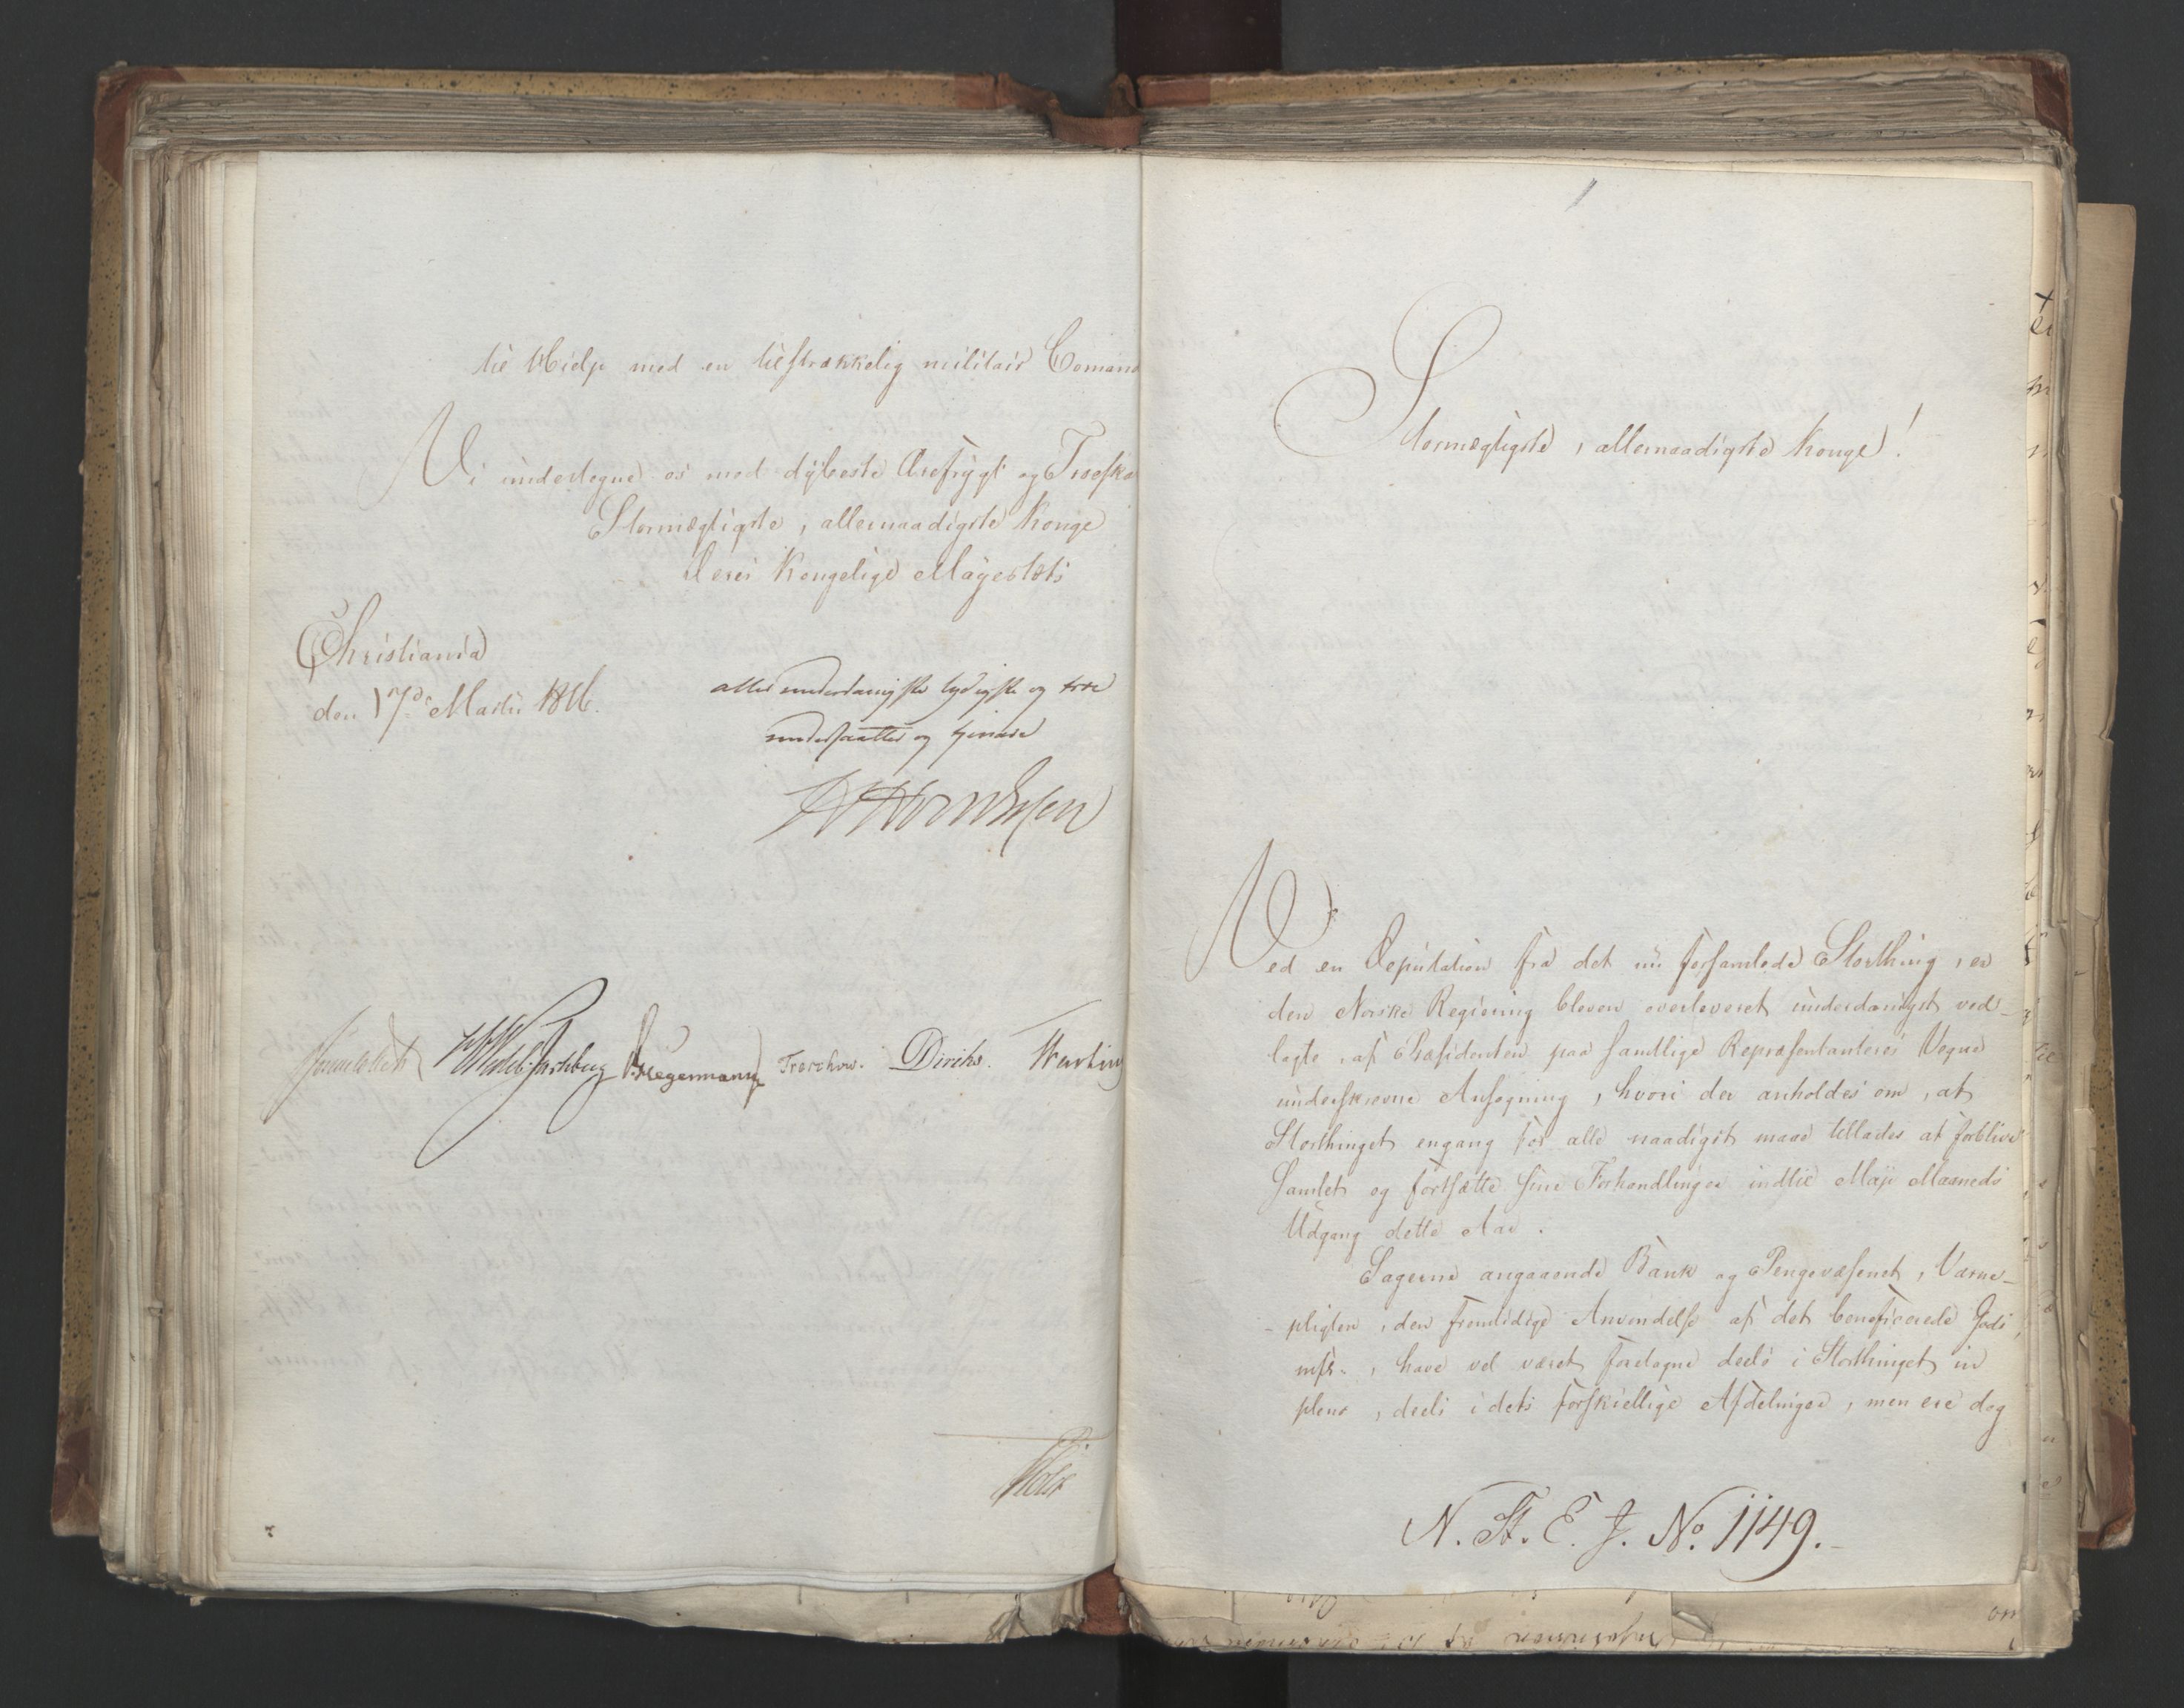 til Hielp med en tilstrækkelig militair Coman
Vi undertegne os med dybeste Ærefrygt og Troeska
Stormægtigste, allernaadigste Konge
Deres Kongelige Mayestæts
Christiania
den 17de Martii 1816.
allerunderdanigste lydigste og troe
undersaatter og tjenere
Sommerhielm HWedel Jarlsberg D.Hegermann Treschow. Diriks. Krefting
Holst
Stormægtigste, allernaadigste Konge!
Ved en Deputation fra det nu forsamlede Storthing, er
den Norske Regiering bleven overleveret underdanigst ved-
lagte, af Præsidenten paa samtlige Repræsentanteres Vegne
underskrevne Ansøgning, hvori der anholdes om, at
Storthinget engang for alle naadigst maae tillades at forblive
samlet og fortsætte sine Forhandlinger indtil Maji Maaneds
Udgang dette Aar.
Sagerne angaaende Bank og Pengevæsenet, Værne-
-pligten, den fremtidige Anvendelse af det beneficerede Gods,
msk., have vel været foretagne deels i Storthinget in
pleno, deels i dets forskiellige Afdelinger, men ere dog
N. St. E. J. No. 1149.-